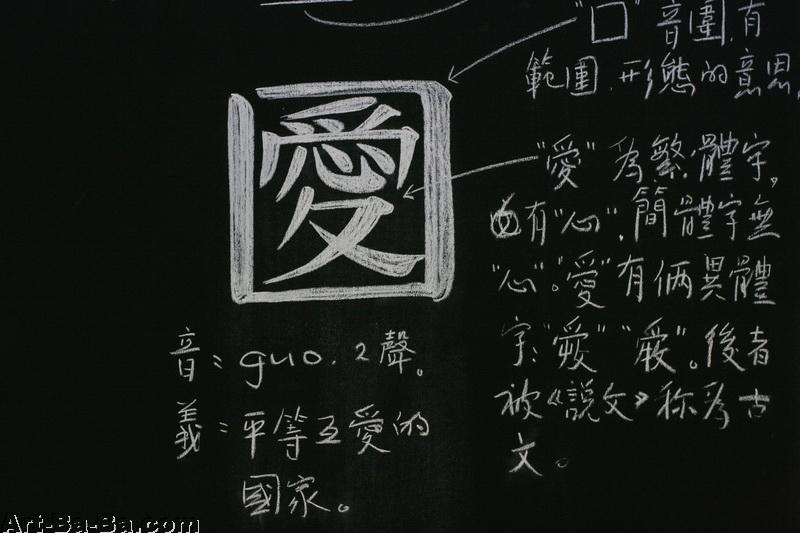 "囗"音圍,有
範圍,形態的意思,
"愛"為繁體字,
內有"心",簡體字無
"心"。"愛"有倆異體
字:"㤅" "㤅"。後者
被《說文》称為古
文。
愛
音:guo.2聲。
義:平等互愛的
國家。
Art-Ba-Ba.com